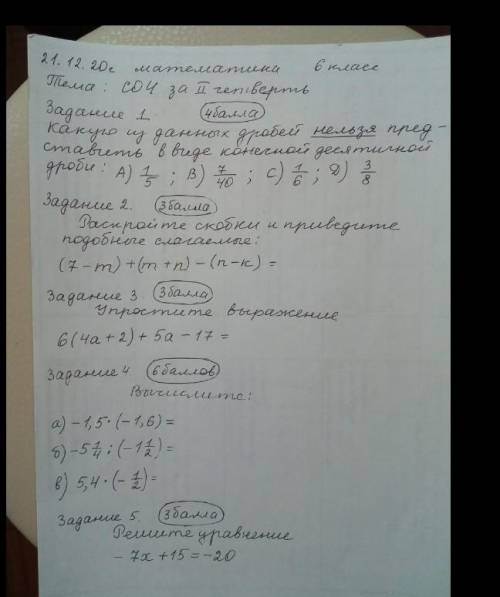 21.12.20г математика 6 класс
Тема: СОЧ за II четверть
Задание 1 4балла
Какую из данных дробей нельзя пред-
ставить в виде конечной десятичной
дроби: А) 1/5 ; В) 7/40 ; С) 1/6 ; Д) 3/8
Задание 2. 3балла
Раскройте скобки и приведите
подобные слагаемые:
(7-m)+(m+n)-(n-к) =
Задание 3 3балла
Упростите выражение
6(4а+2)+5а-17=
Задание 4 6баллов
Вычислите:
а) -1,5·(-1,6)=
б) -5 1/4 : (-1 1/2)=
в) 5,4·(-1/2)=
Задание 5. 3балла
Решите уравнение
-7х+15=-20